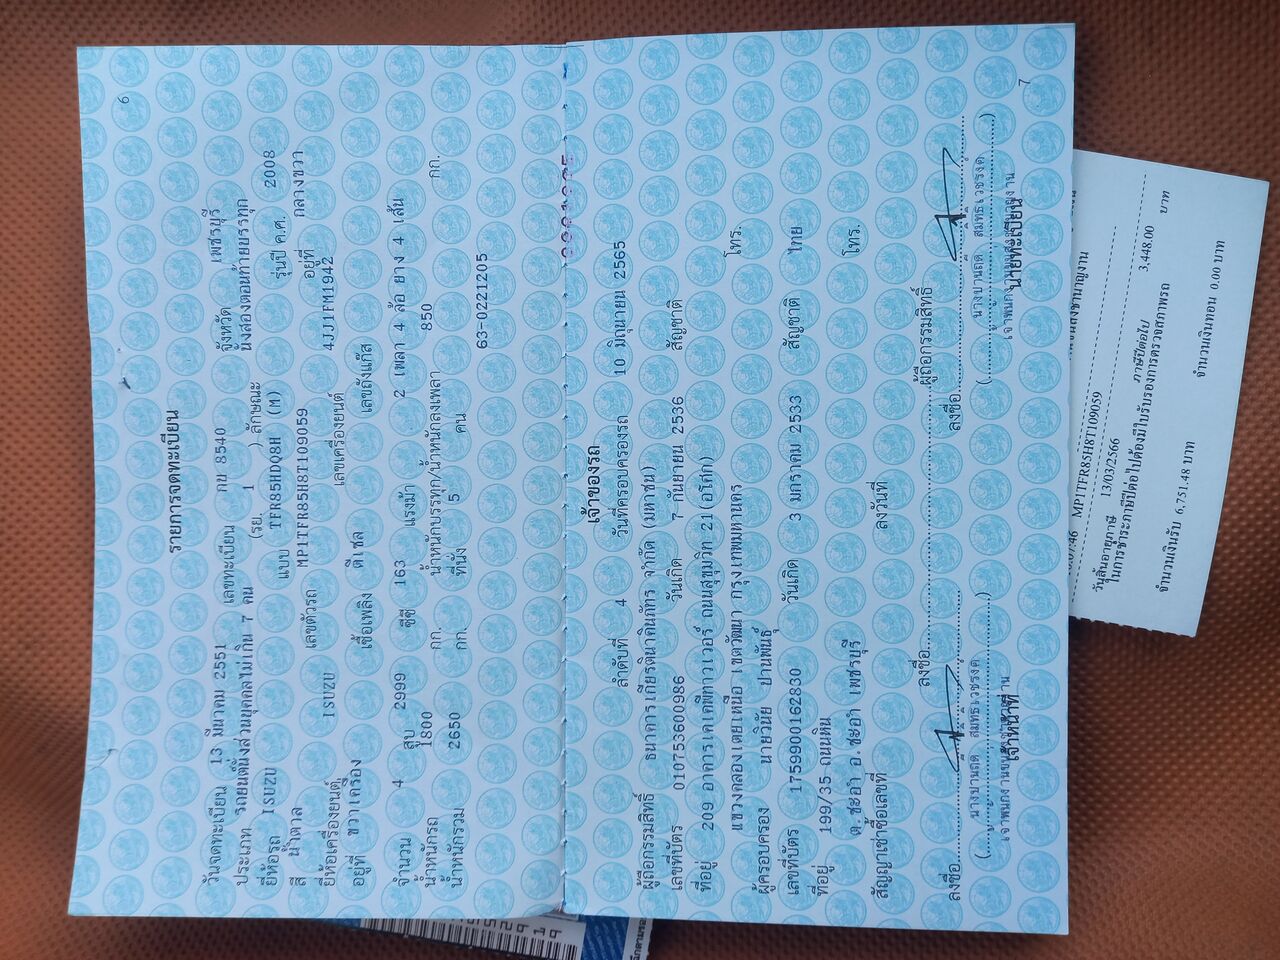 6
รายการจดทะเบียน
วันจดทะเบียน 13 มีนาคม 2551 เลขทะเบียน กบ 8540 จังหวัด เพชรบุรี
ประเภท รถยนต์นั่งส่วนบุคคลไม่เกิน 7 คน (รย. 1 ) ลักษณะ นั่งสองตอนท้ายบรรทุก
ยี่ห้อรถ ISUZU แบบ TFR85HDQ8H (M) รุ่นปี ค.ศ. 2008
สี น้ำตาล เลขตัวรถ MP1TFR85H8T109059 อยู่ที่ กลางขวา
ยี่ห้อเครื่องยนต์ ISUZU เลขเครื่องยนต์ 4JJ1FM1942
อยู่ที่ ขวาเครื่อง เชื้อเพลิง ดีเซล เลขถังแก๊ส
จำนวน 4 สูบ 2999 ซีซี 163 แรงม้า 2 เพลา 4 ล้อ ยาง 4 เส้น
น้ำหนักรถ 1800 กก. น้ำหนักบรรทุก/น้ำหนักลงเพลา 850 กก.
น้ำหนักรวม 2650 กก. ที่นั่ง 5 คน
63-0221205
เจ้าของรถ
ลำดับที่ 4 วันที่ครอบครองรถ 10 มิถุนายน 2565
ผู้ถือกรรมสิทธิ์ ธนาคารเกียรตินาคินภัทร จำกัด (มหาชน)
เลขที่บัตร 0107536000986 วันเกิด 7 กันยายน 2536 สัญชาติ
ที่อยู่ 209 อาคารเคเคพีทาวเวอร์ ถนนสุขุมวิท 21(อโศก)
แขวงคลองเตยเหนือ เขตวัฒนา กรุงเทพมหานคร โทร.
ผู้ครอบครอง นายวินัย ปานพันธุ์
เลขที่บัตร 1759900162830 วันเกิด 3 มกราคม 2533 สัญชาติ ไทย
ที่อยู่ 199/35 ถนนหิน
ต.ชะอำ อ.ชะอำ เพชรบุรี โทร.
สัญญาเช่าซื้อเลขที่ ลงวันที่
ลงชื่อ ผู้ถือกรรมสิทธิ์
ลงชื่อ ลงชื่อ
เจ้าหน้าที่ นายทะเบียน
7
MP1TFR85H8T109059
วันสิ้นอายุภาษี 13/03/2566 ภาษีปีต่อไป 3,448.00 บาท
ในการชำระภาษีปีต่อไปต้องมีใบรับรองการตรวจสภาพรถ
จำนวนเงินรับ 6,751.48 บาท จำนวนเงินทอน 0.00 บาท